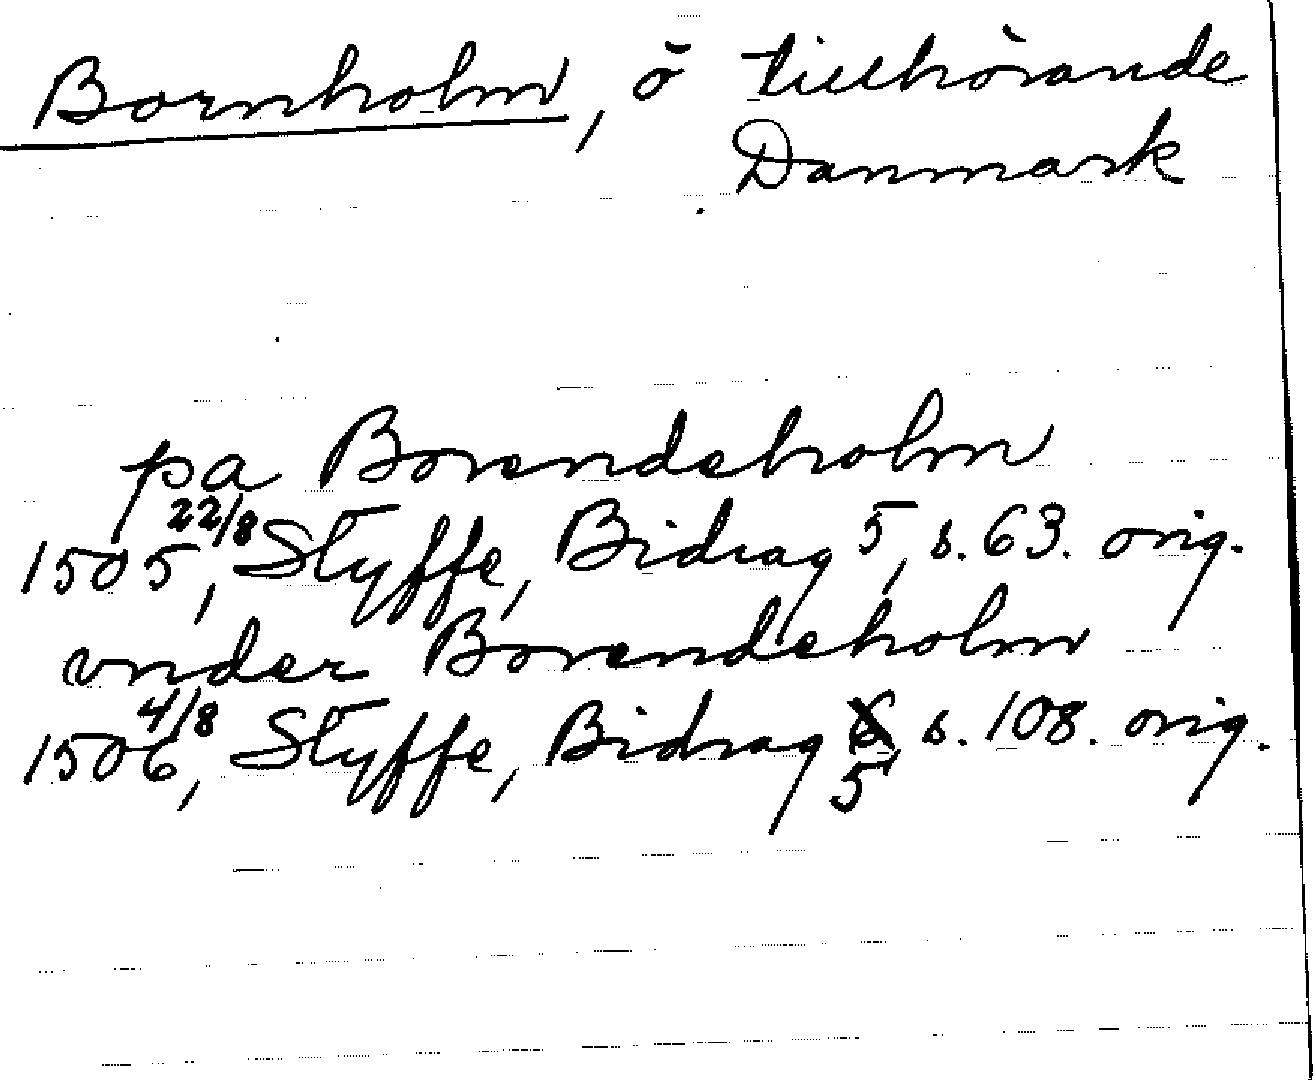 Bornholm, ö tillhörande
Danmark
pa Borendeholm
1505 22/8, Styffe, Bidrag 5, s. 63. orig.
vnder Borendeholm
1506 4/8, Styffe, Bidrag 5, s. 108. orig.